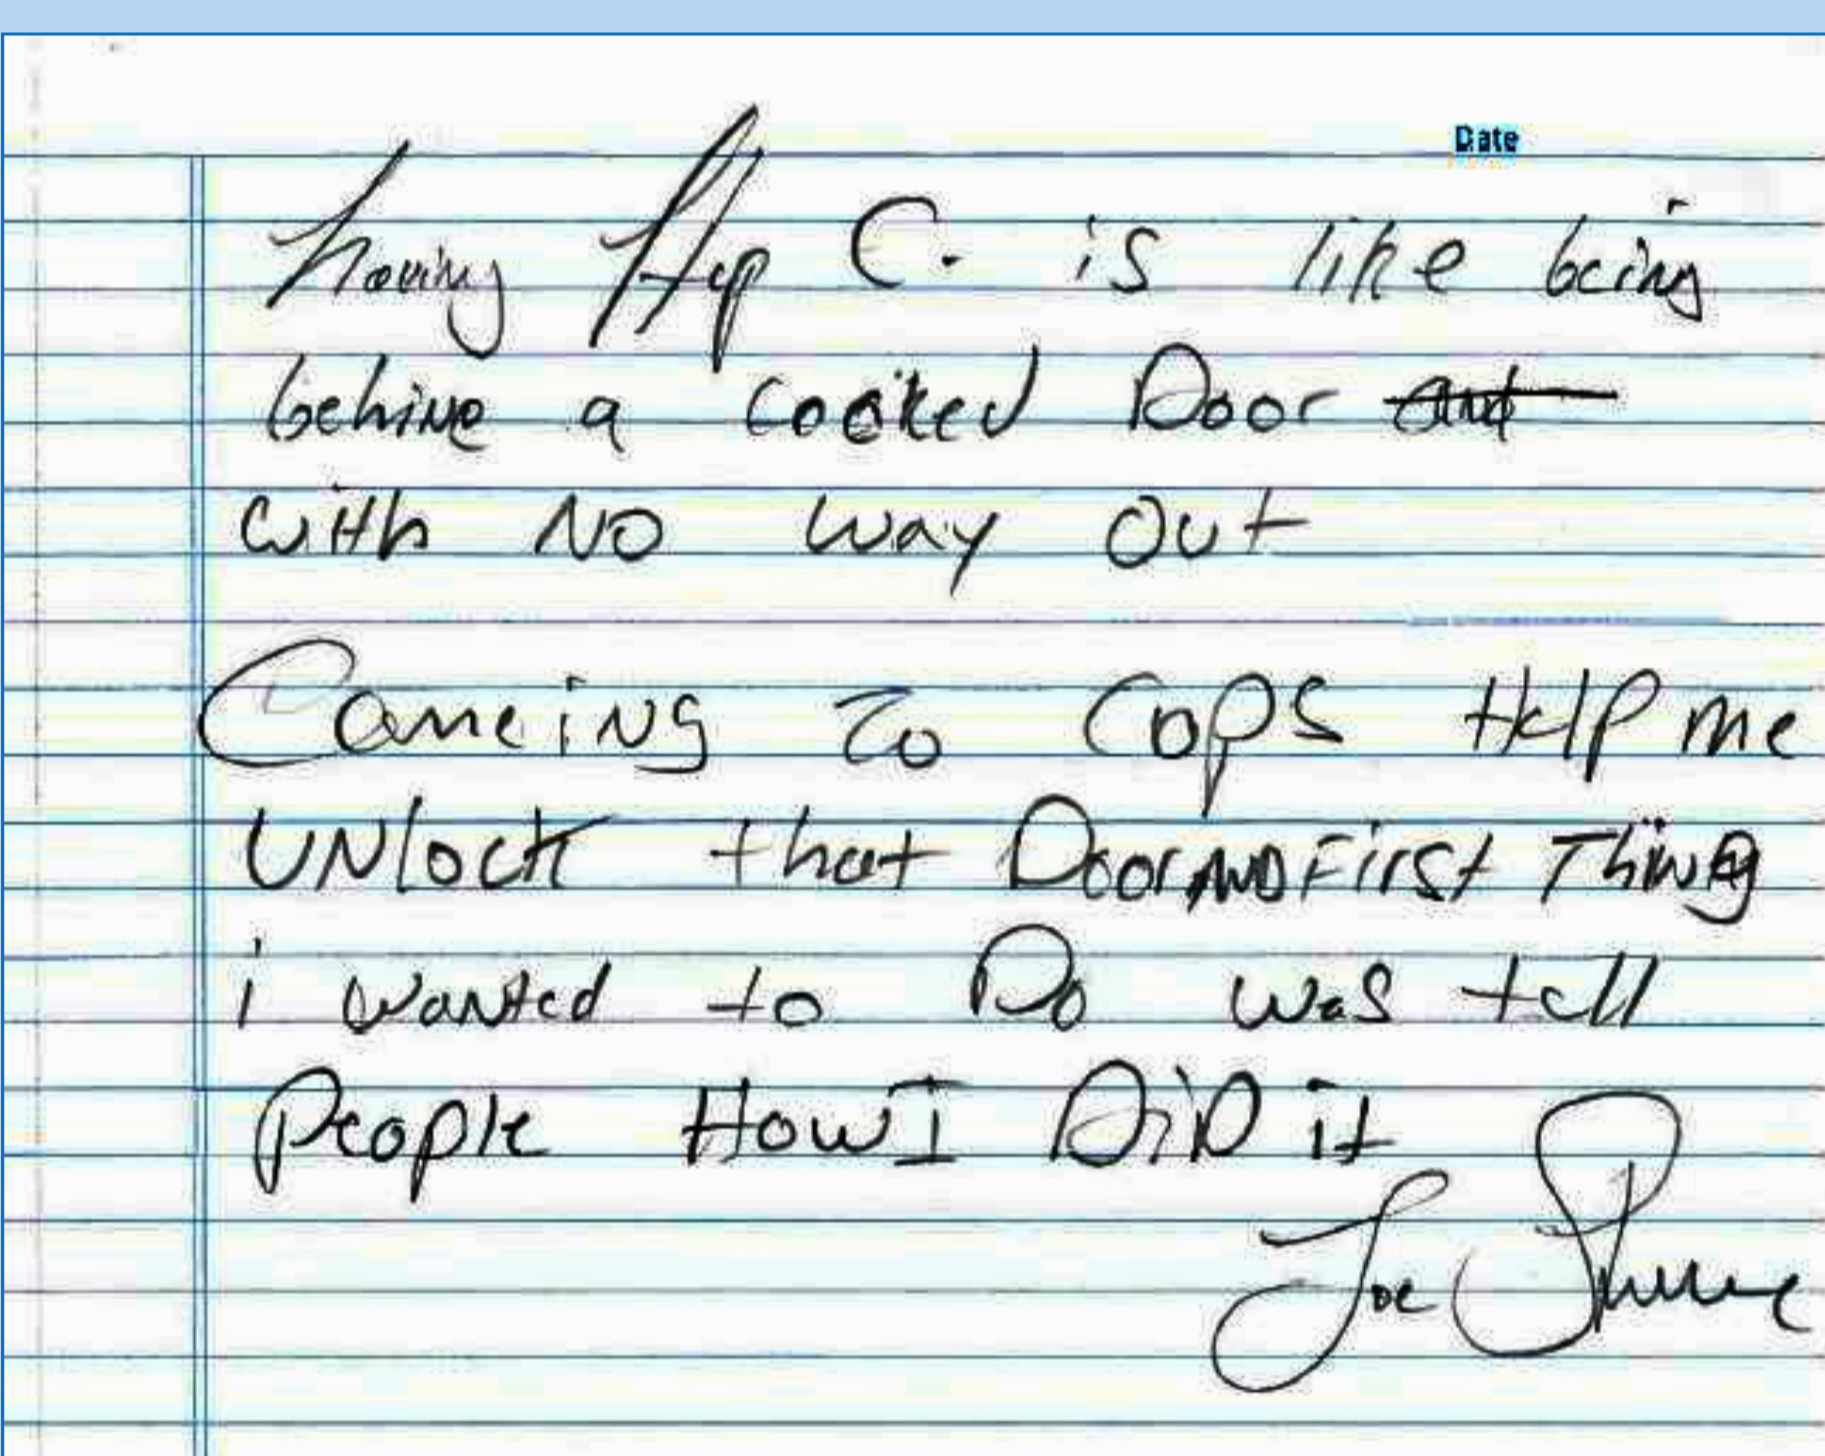 Date
having Hep C. is like being
behine a Cocked Door and
with NO way Out
Cameing To COPS Help me
UNlock that Door AND First Thing
i wanted to Do was tell
People How I DiD it
Joe